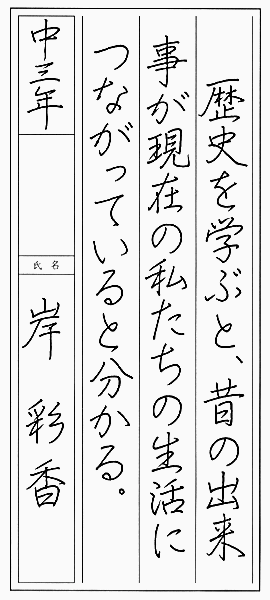 歴史を学ぶと、昔の出来
事が現在の私たちの生活に
つながっていると分かる。
中三年
氏名
岸 彩香